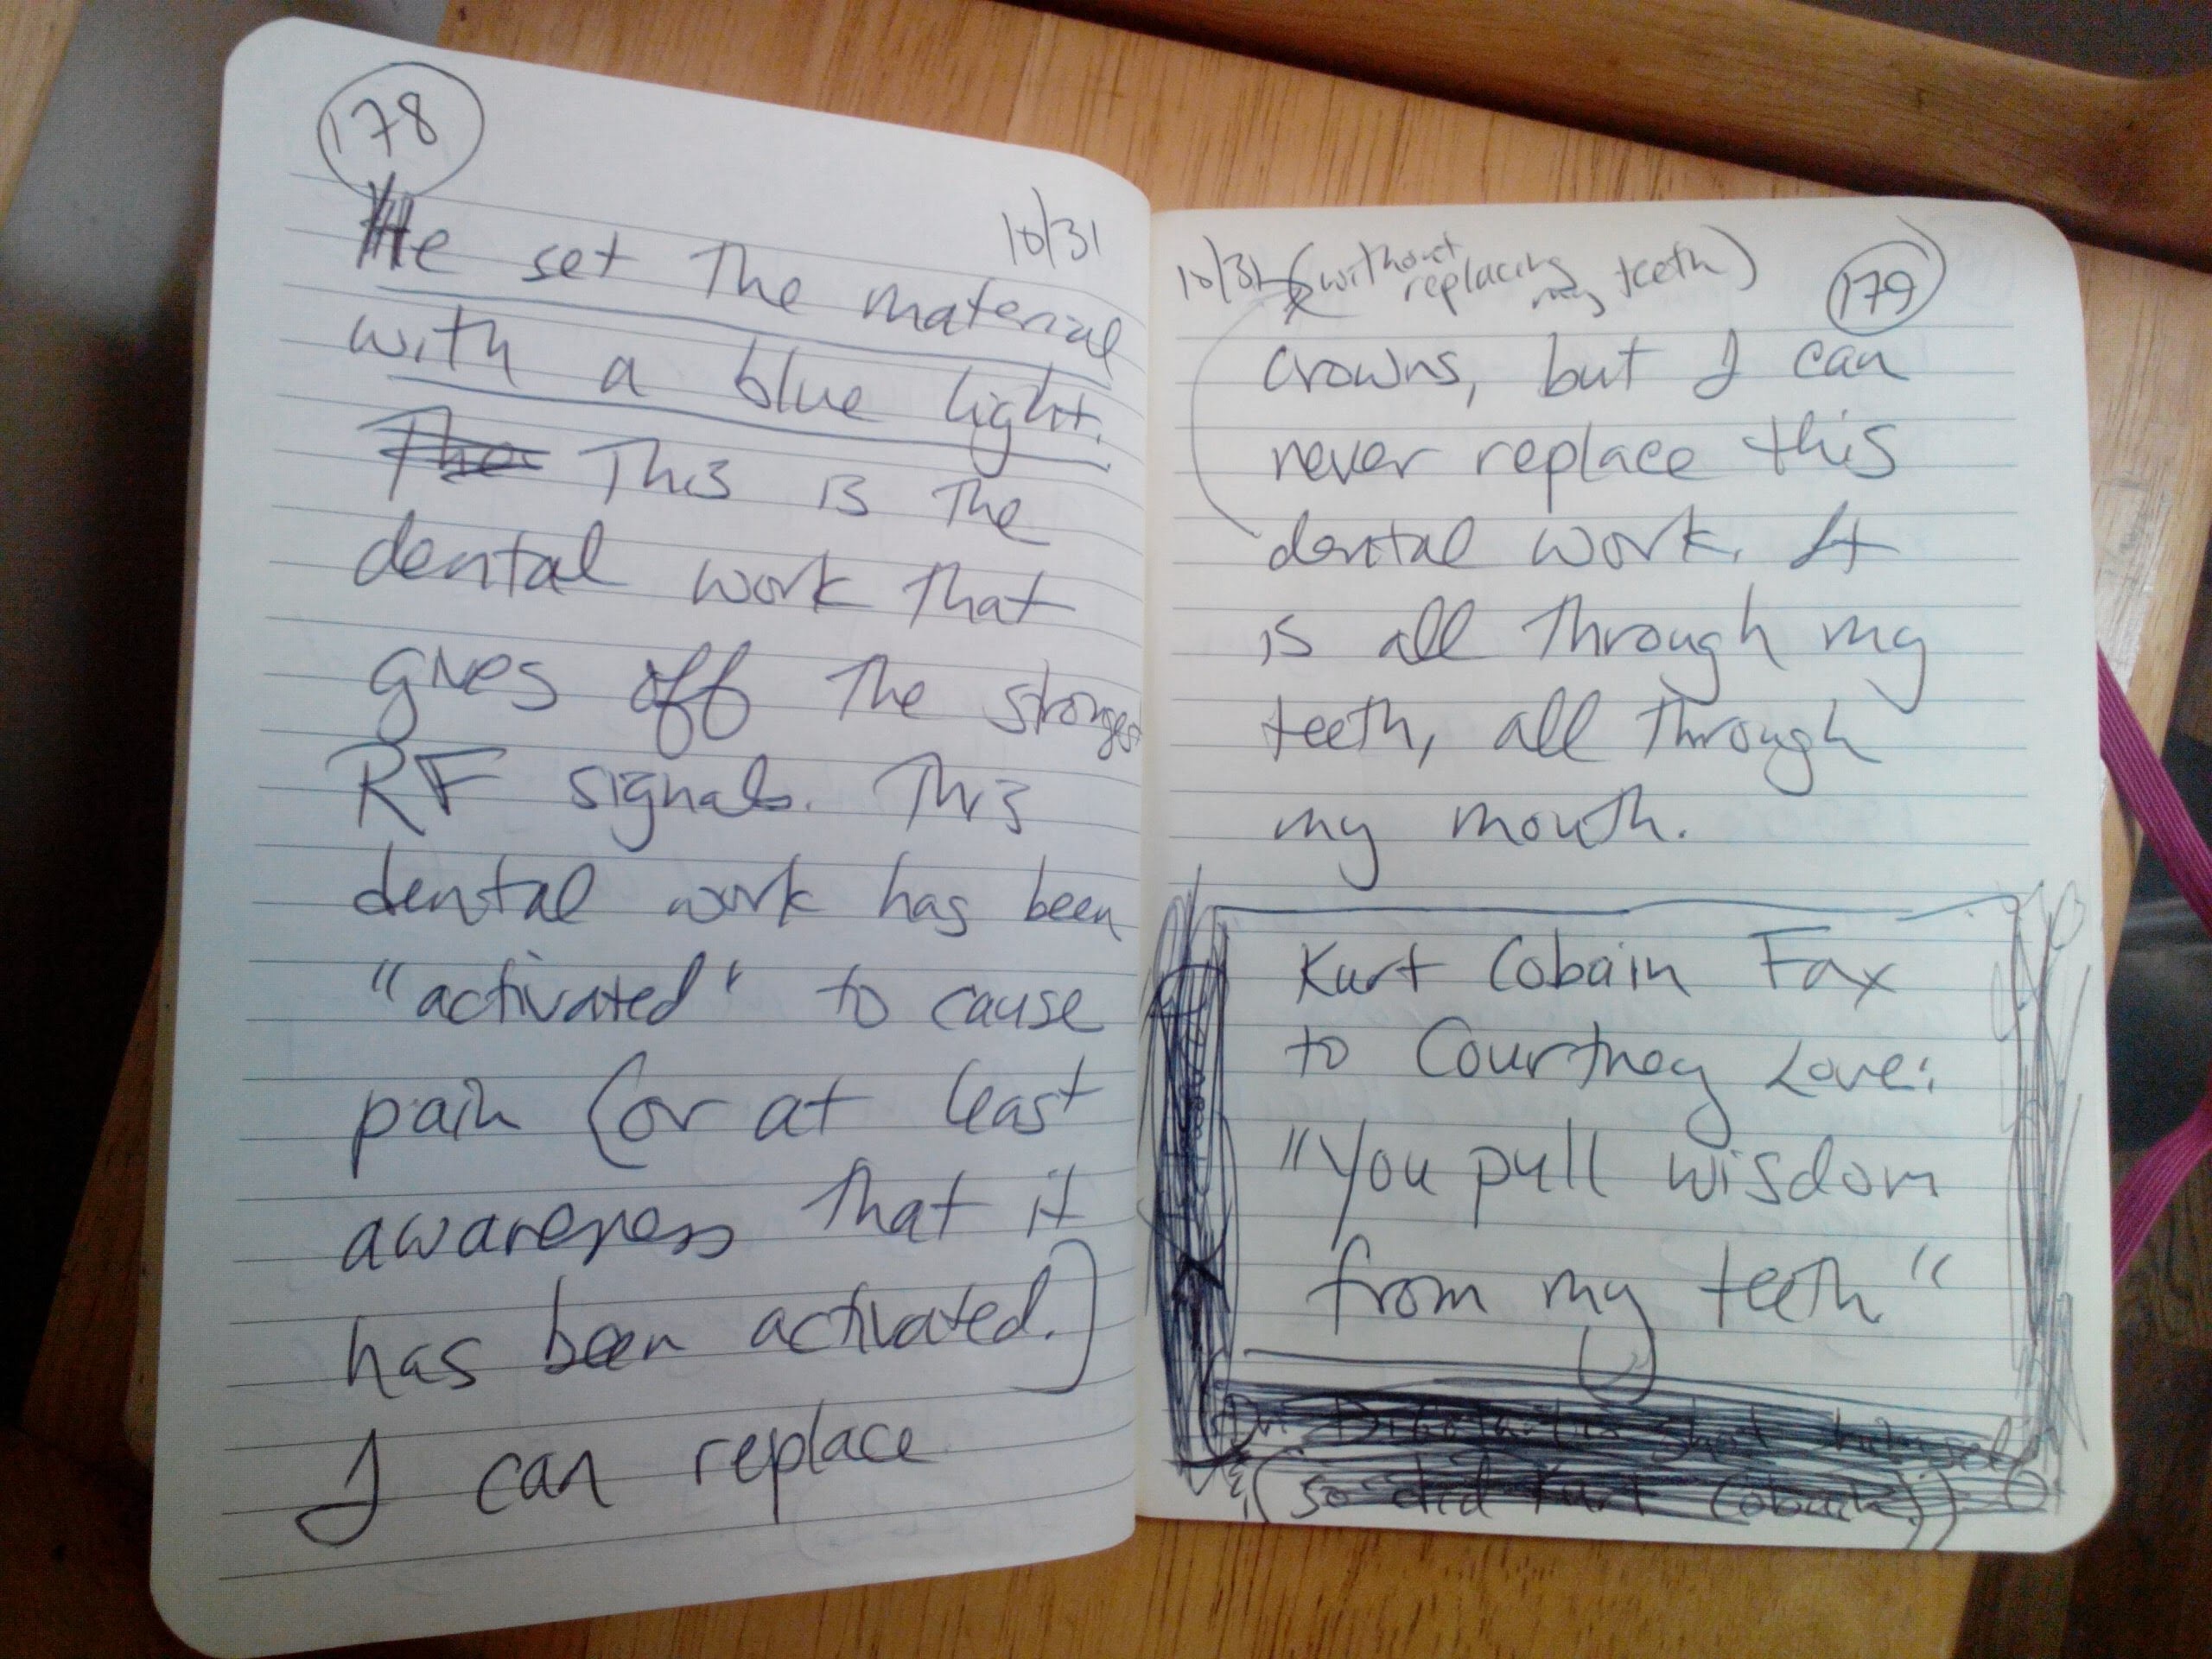 178
10/31
He set the material
with a blue light.
This is the
dental work that
gives off the strongest
RF signals. This
dental work has been
"activated" to cause
pain (or at least
awareness that it
has been activated.)
I can replace
10/31 (without replacing my teeth)
179
crowns, but I can
never replace this
dental work. It
is all through my
teeth, all through
my mouth.
Kurt Cobain Fax
to Courtney Love:
"You pull wisdom
from my teeth"
shot himself
(so did Kurt Cobain.))